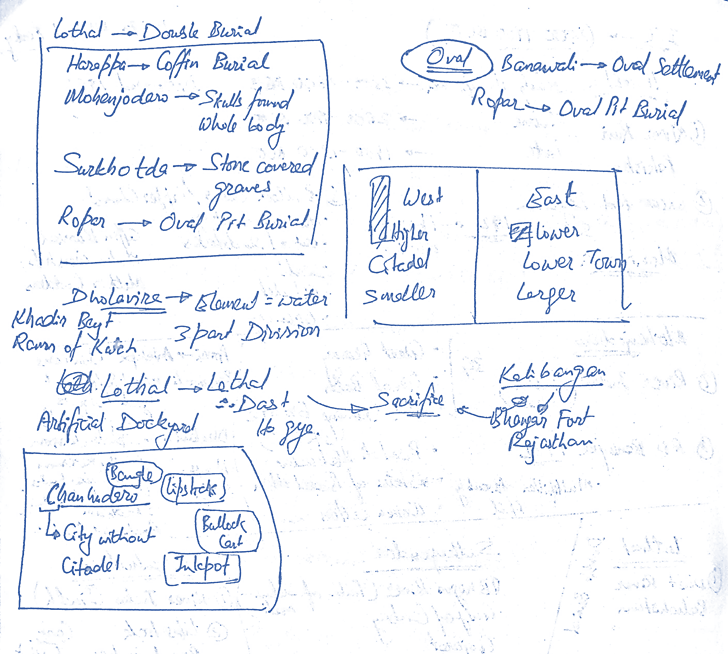 Lothal → Double Burial
Harappa → Coffin Burial
Mohenjodero → Skulls found
whole body
Surkhotda → Stone covered
graves
Ropar → Oval Pit Burial
Oval Banawali → Oval Settlement
Ropar → Oval Pit Burial
West East
Higher lower
Citadel Lower Town
Smaller Larger
Dholavira → Element = water
Khadir Beyt 3 part Division
Rann of Kutch
Lothal → Lethal
Artificial Dockyard ∴ Dast
Ho gye.
Sacrifice
Kalibangan
Bhangar Fort
Rajasthan
Bangle
Chanhudero Lipsticks
↳ City without Bullock
Cart
Citadel Inkpot